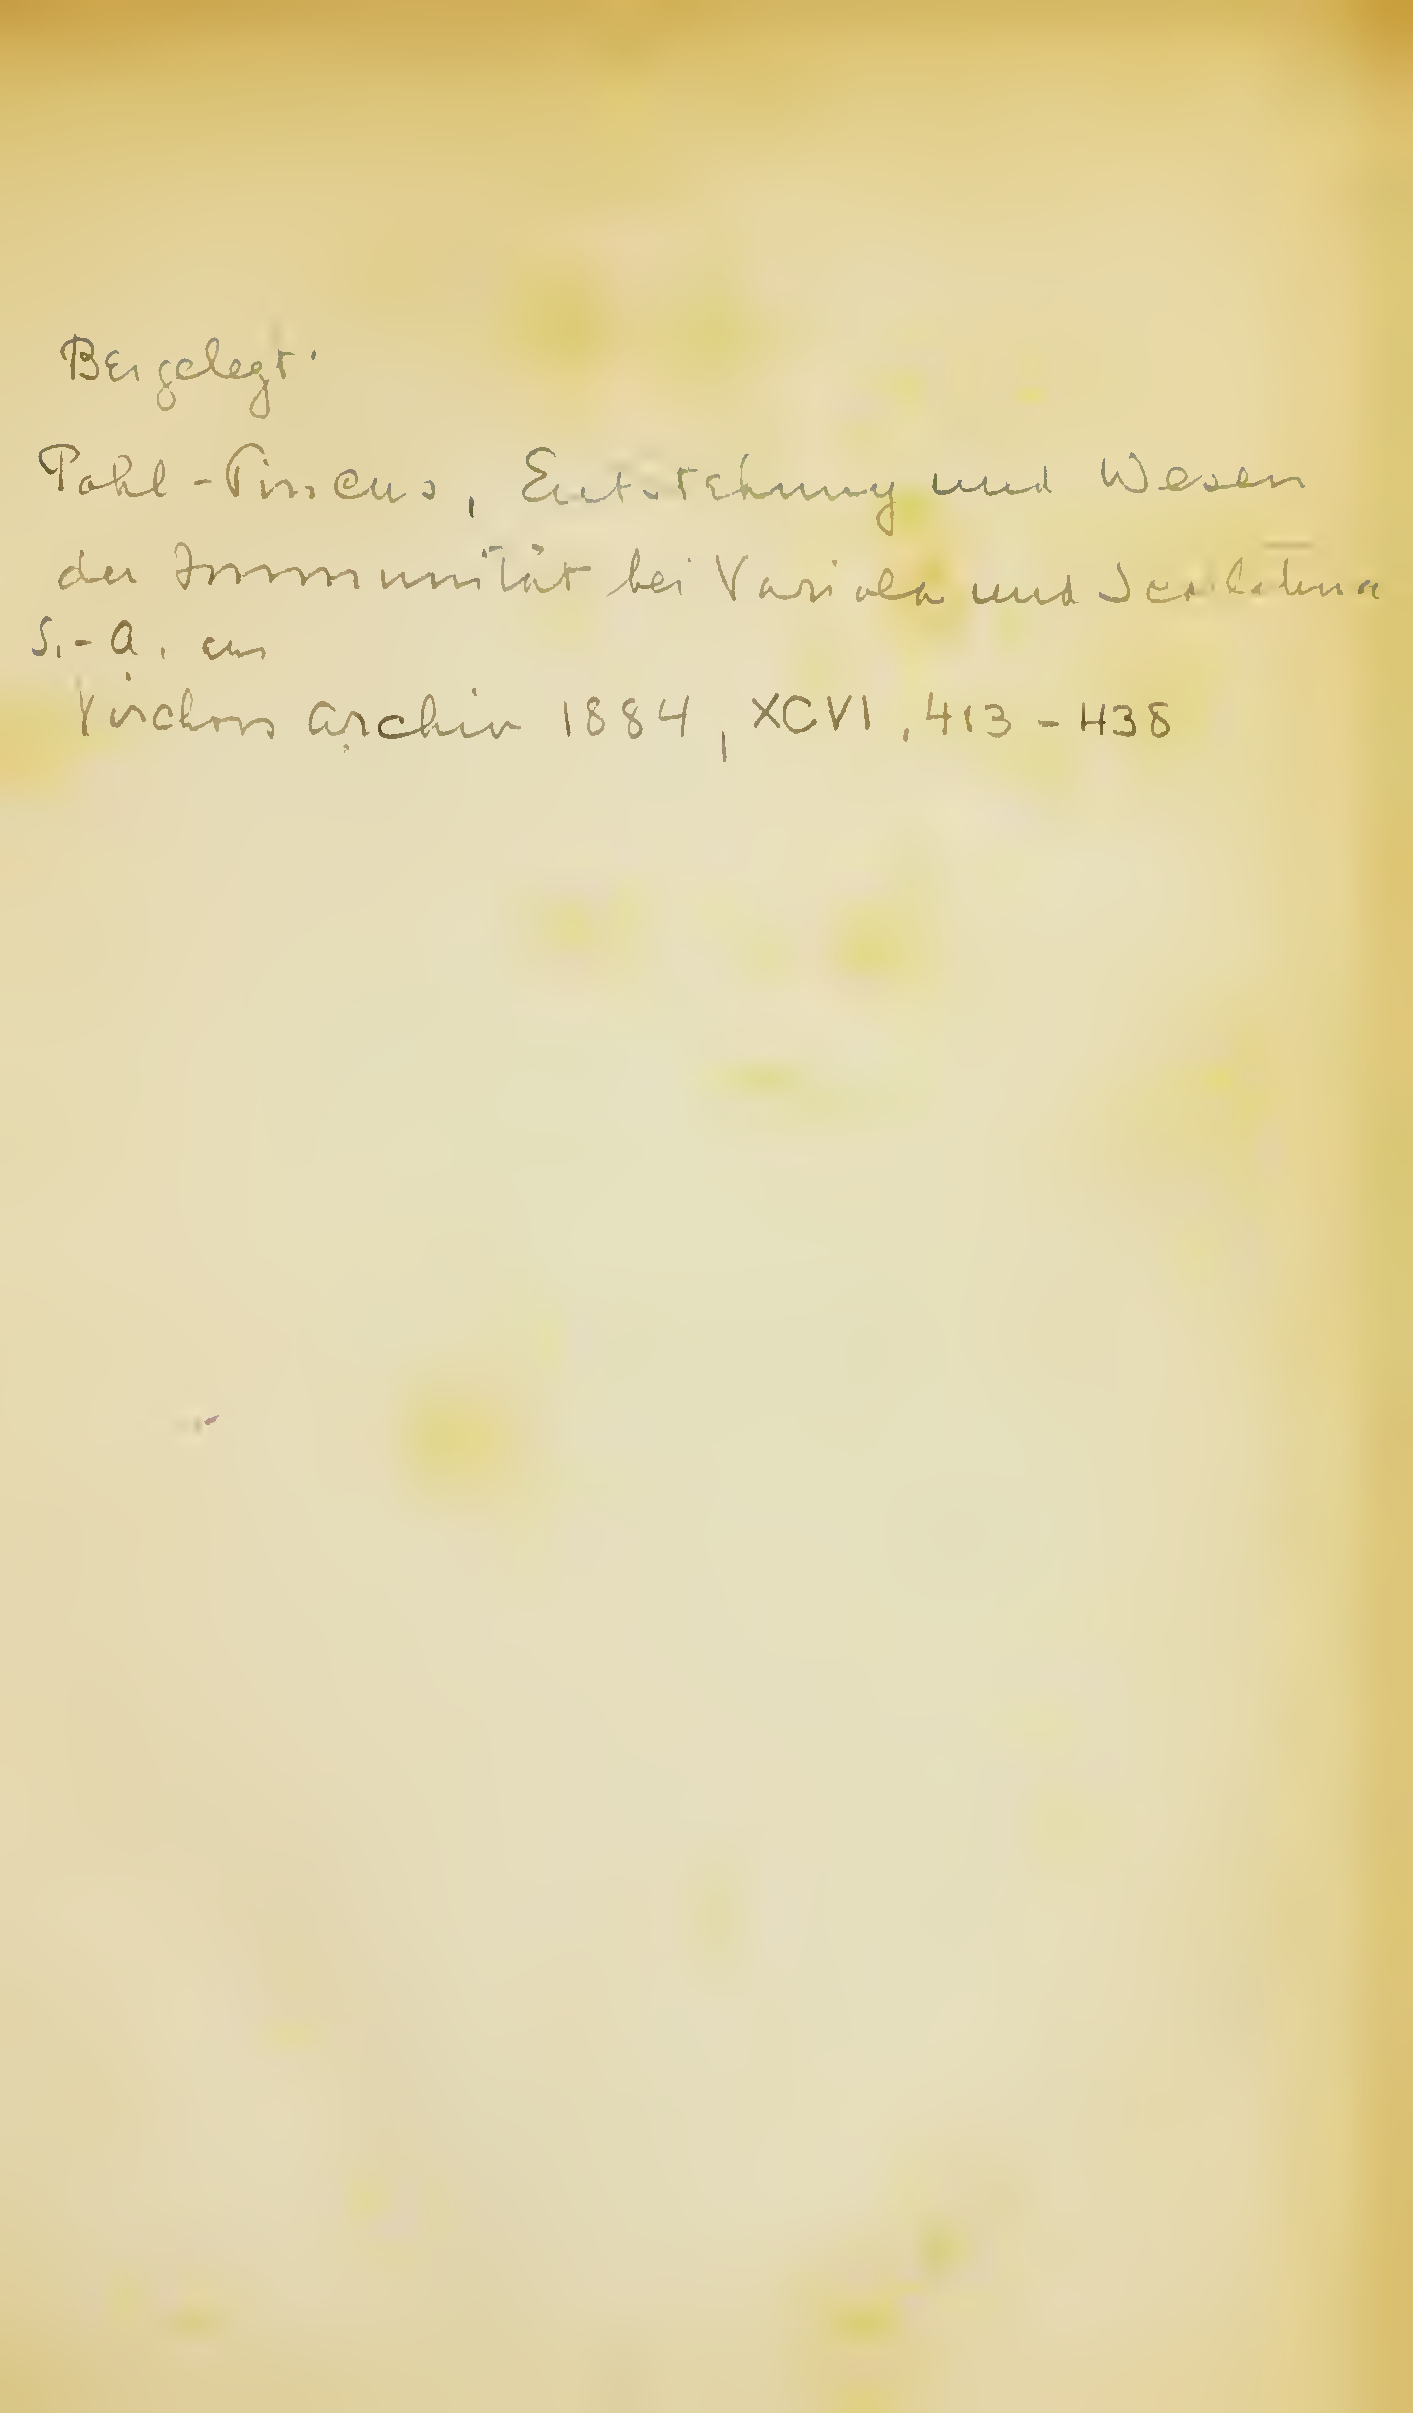 Beigelegt:
Pohl-Pincus, Entstehung und Wesen
der Immunität bei Variola und Scarlatina
S.-A. aus
Virchows Archiv 1884, XCVI, 413-438